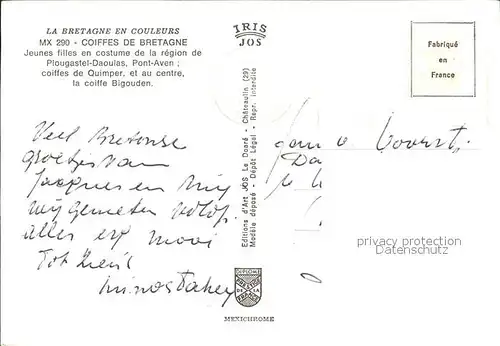 LA BRETAGNE EN COULEURS
MX 290 - COIFFES DE BRETAGNE
Jeunes filles en costume de la région de
Plougastel-Daoulas, Pont-Aven ;
coiffes de Quimper, et au centre,
la coiffe Bigouden.
IRIS
JOS
Fabriqué
en
France
Editions d'Art JOS Le Doaré - Châteaulin (29)
Modèle déposé - Dépôt Légal - Repr. interdite
Veel Bretonse
groetjes van
Jacques en mij
wij genieten volop.
alles erg mooi
Tot ziens
privacy protection
Datenschutz
DIPLOME
MEXICHROME